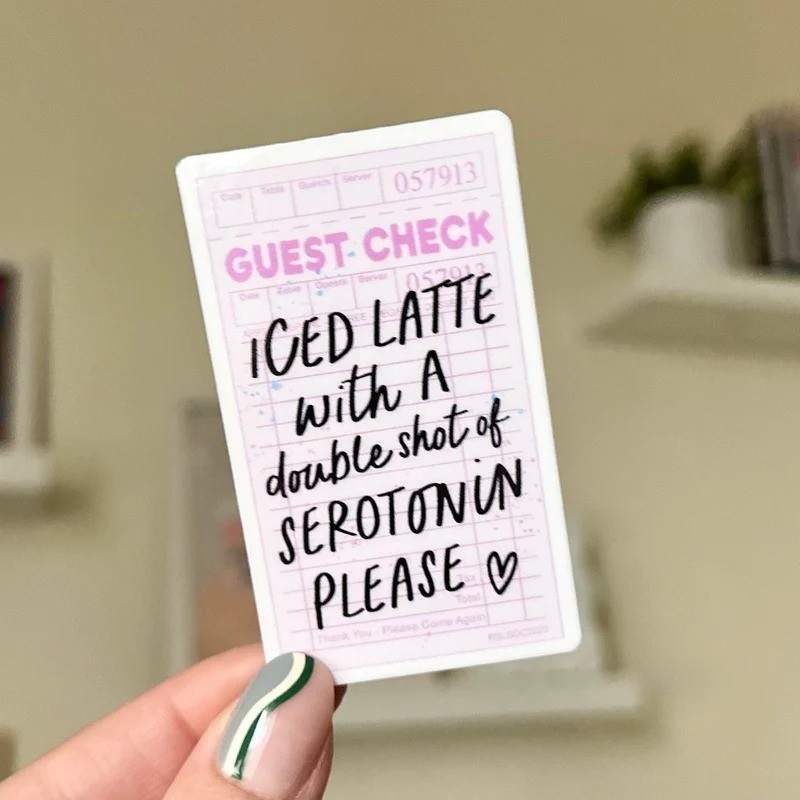 Date Table Guests Server 057913
GUEST CHECK
Date Table Guests Server 057913
ICED LATTE
with A
double shot of
SEROTONIN
PLEASE ♡
Tax
Total
Thank You - Please Come Again